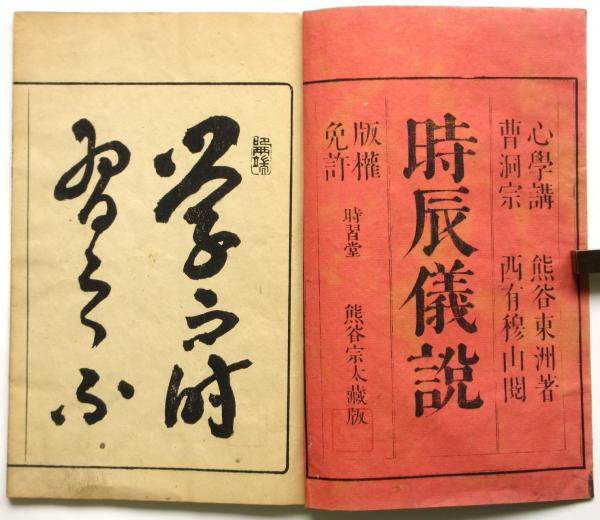 心學講 熊谷東洲著
曹洞宗 西有穆山閲
時辰儀說
版權
免許
時習堂 熊谷宗太藏版
學而時
習之不